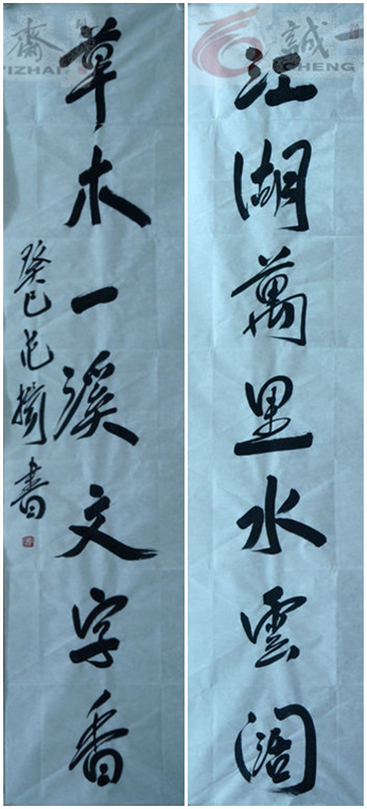 江湖萬里水雲阔
草木一溪文字香
癸巳
書
一誠
YICHENG
齋
YIZHAI